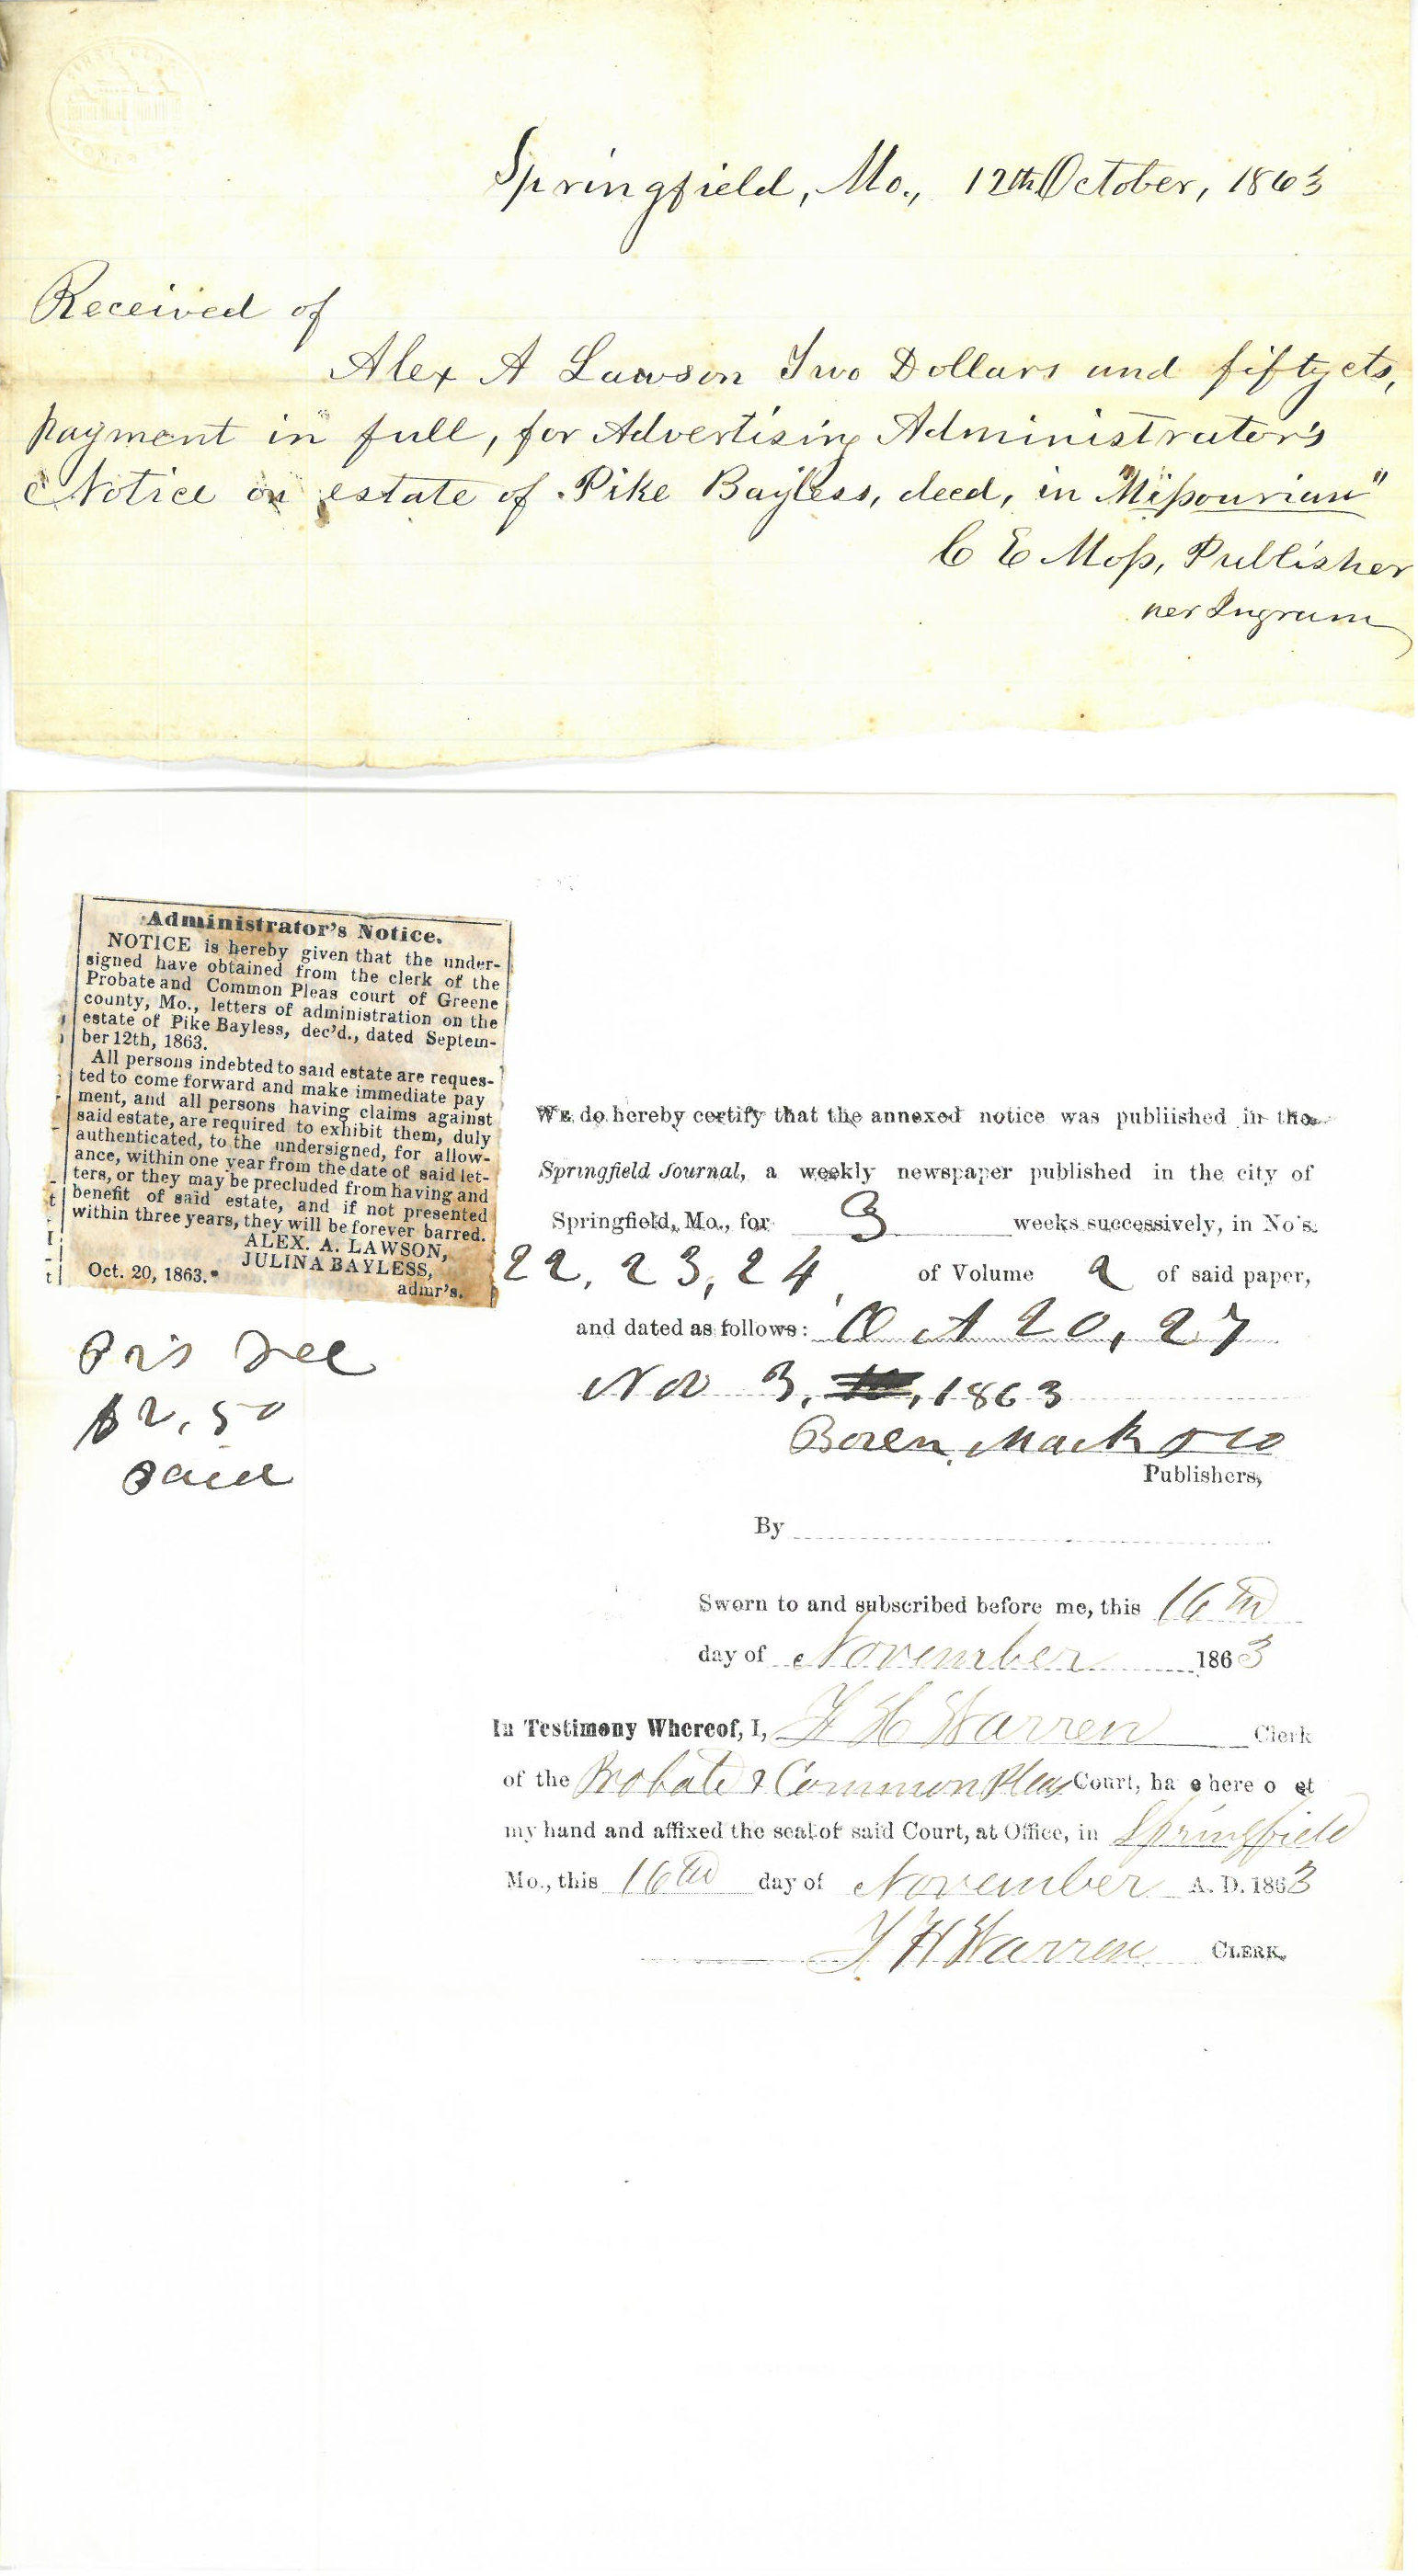 Springfield, Mo., 12th October, 1863
Received of
Alex A Lawson Two Dollars and fifty cts,
payment in full, for Advertising Administrator's
Notice on estate of Pike Bayless, decd, in "Missourian"
C E Moss, Publisher
per Ingram
Administrator's Notice.
NOTICE is hereby given that the under-
signed have obtained from the clerk of the
Probate and Common Pleas court of Greene
county, Mo., letters of administration on the
estate of Pike Bayless, dec'd., dated Septem-
ber 12th, 1863.
All persons indebted to said estate are reques-
ted to come forward and make immediate pay
ment, and all persons having claims against
said estate, are required to exhibit them, duly
authenticated, to the undersigned, for allow-
ance, within one year from the date of said let-
ters, or they may be precluded from having and
benefit of said estate, and if not presented
within three years, they will be forever barred.
ALEX. A. LAWSON,
JULINA BAYLESS,
Oct. 20, 1863.* admr's.
$2,50
Paid
We do hereby certify that the annexed notice was publiished in the
Springfield Journal, a weekly newspaper published in the city of
Springfield, Mo., for 3 weeks successively, in No's.
22, 23, 24, of Volume 2 of said paper,
and dated as follows: Oct 20, 27
Nov 3, 1863
Boren, Mack & Co
Publishers,
By
Sworn to and subscribed before me, this 16th
day of November 1863
In Testimony Whereof, I, J H Warren Clerk
of the Probate & Common Pleas Court, ha e here o et
my hand and affixed the seal of said Court, at Office, in Springfield
Mo., this 16th day of November A. D. 1863
J H Warren CLERK.